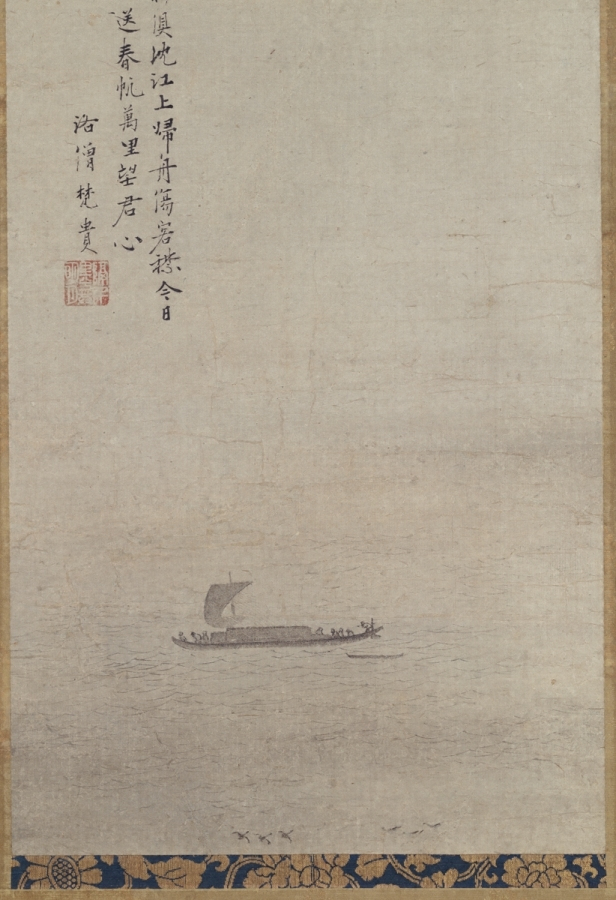 溟沈江上歸舟傷客襟今日
送春帆萬里望君心
洛僧梵貴